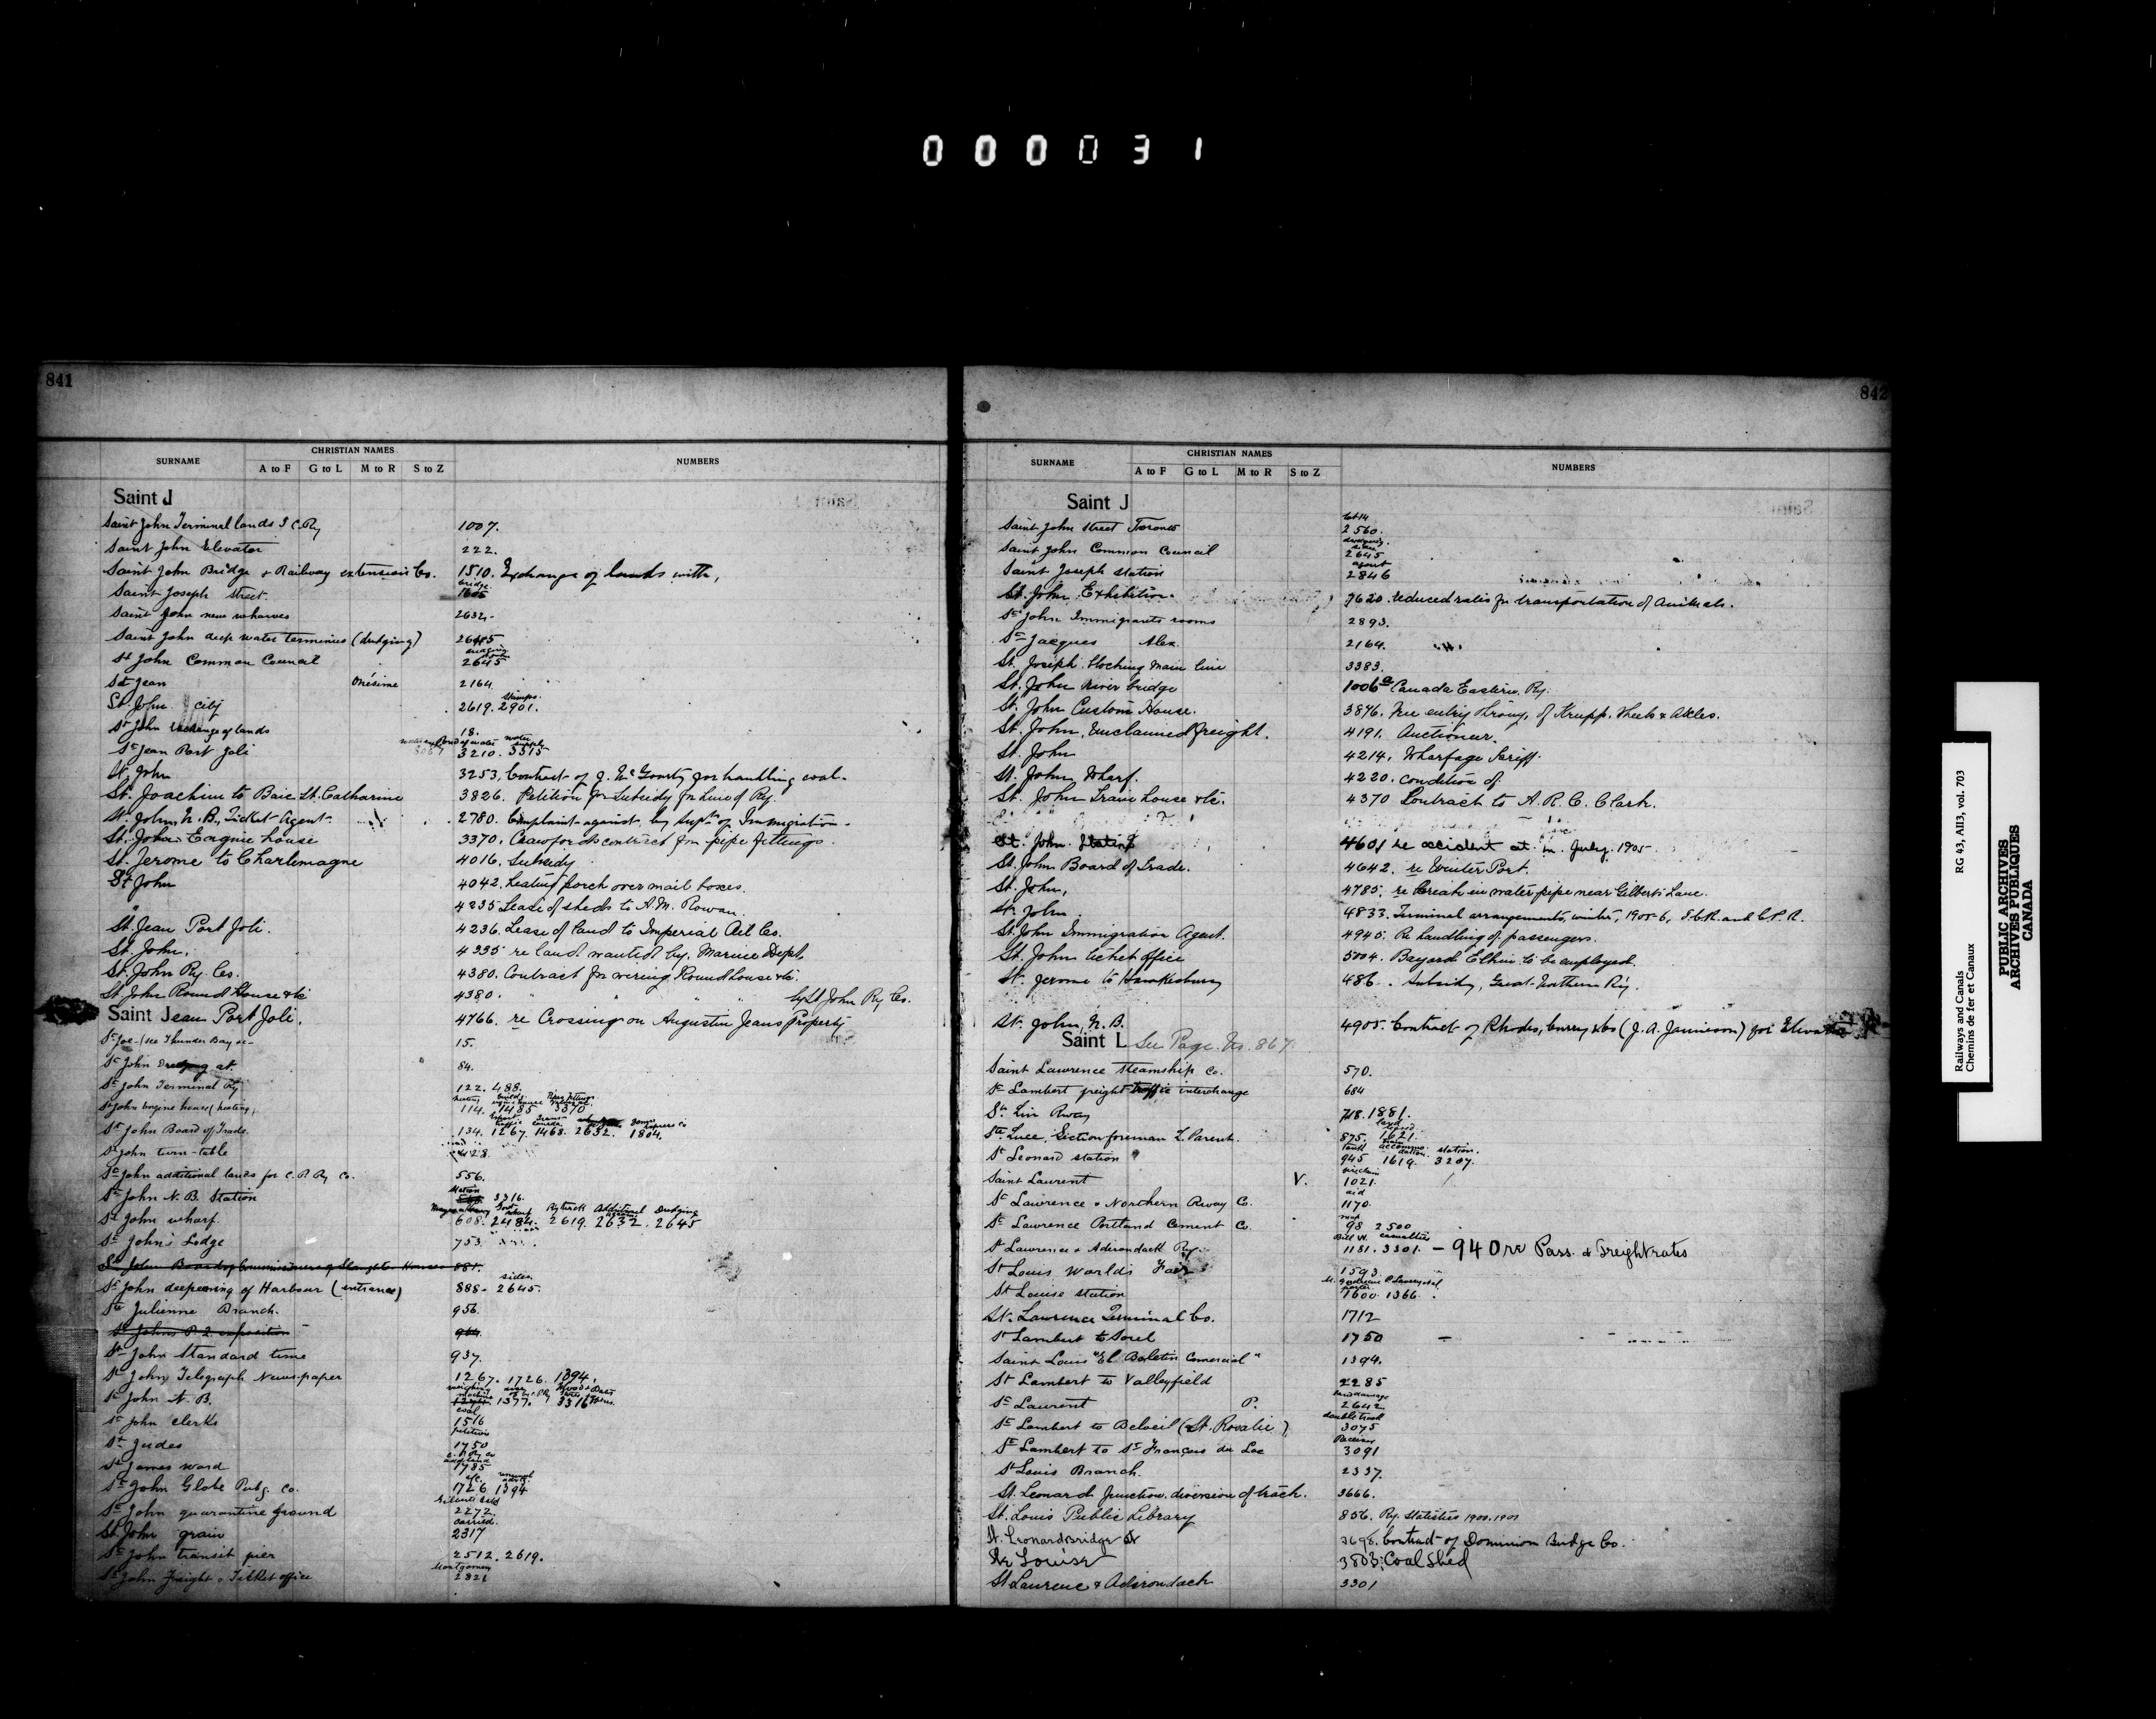 000031
841
SURNAME CHRISTIAN NAMES A to F G to L M to R S to Z NUMBERS
Saint J
Saint John Terminal lands I C. Ry 1007.
Saint John Elevator 222.
Saint John Bridge & Railway extension Co. 1510. Exchange of lands with,
Saint Joseph Street. bridge
Saint John new wharves 2632.
Saint John deep water terminus (dredging) 2645
St John Common Council 2645
St Jean Onésime 2164
St. John city 2619. stamps. 2901.
St John exchange of lands 18.
St Jean Port Joli 3210. water supply 3515
St. John 3253. Contract of J. McGourty for handling coal.
St. Joachim to Baie St. Catharine 3826. Petition for Subsidy for Line of Ry.
St. John, N.B. Ticket Agent. 2780. Complaint against, by Supt. of Immigration.
St. John Engine house 3370. Crawfords contract for pipe fittings.
St. Jerome to Charlemagne 4016. Subsidy.
St John 4042. heating porch over mail boxes.
" 4235 Lease of sheds to A.M. Rowan.
St. Jean Port Joli. 4236. Lease of land to Imperial Oil Co.
St. John. 4335 re land wanted by Marine Dept
St. John Ry. Co. 4380. Contract for wiring Roundhouse &c.
St. John Round House &c 4380. " " " " by St. John Ry Co.
Saint Jean Port Joli. 4766. re Crossing on Augustin Jeans Property
St Joe - (see Thunder Bay &c - 15.
St John Dredging at 84.
St John Terminal Ry 122. 488.
St John engine house (heating) 114. 1485 3370
St John Board of Trade. 134. 1267. 1463. 2632. 1804.
St John turn-table 428.
St John additional lands for C.P. Ry Co. 556.
St John N.B. Station 3316.
St John wharf. 608. 2484. 2619. 2632. 2645
St John's Lodge 753.
St John Board of Commissioners of Slaughter Houses 881.
St John deepening of Harbour (entrance) 888. 2645.
Ste Julienne Branch. 956.
St Johns P.Q. exposition 964.
St John Standard time 937.
St John Telegraph Newspaper 1267. 1726. 1394.
St John N.B. 1377. 3316
St John clerks coal 1516
St Judes petition 1750
St James ward 1785
St John Globe Pubg. Co. 1726 1394
St John quarantine ground 2272.
St. John grain carried. 2317
St John transit pier 2512. 2619.
St John Freight & Ticket office Montgomery 2821
842
SURNAME CHRISTIAN NAMES A to F G to L M to R S to Z NUMBERS
Saint J
Saint John Street Toronto lot 14 2560.
Saint John Common Council dredging 2645
Saint Joseph station agent 2846
St. John Exhibition. 7620. reduced rates for transportation of Animals.
St John Immigrants rooms 2893.
St Jacques Alex. 2164.
St. Joseph blocking main line 3383.
St. John River bridge 1006a Canada Eastern Ry.
St. John Custom House. 3876. Free entry of Krupp Wheels & Axles.
St. John, Unclaimed freight. 4191. Auctioneer.
St. John 4214. Wharfage Tariff.
St. John Wharf. 4220. condition of
St. John Train house &c. 4370 Contract to A. R. C. Clark.
St. John. Station 4601 re accident at in July, 1905.
St. John Board of Trade. 4642. re Winter Port.
St. John. 4785. re break in water pipe near Gilberts Lane.
St. John. 4833. Terminal arrangements, winter, 1905-6, I.C.R. and C.P.R.
St. John Immigration Agent. 4945. Re handling of passengers.
St. John ticket office 5004. Bayard Elkin to be employed.
St. Jerome to Hawkesbury 486. Subsidy, Great Northern Ry.
St. John, N.B. 4905. Contract of Rhodes, Curry & Co (J. A. Jamieson) for Elevator
Saint L See Page No. 867.
Saint Lawrence Steamship Co. 570.
St Lambert freight traffic interchange 684
St Lin Rway 718. 1881.
Ste. Luce, Section foreman L. Parent. 875. 1621.
St Leonard station 945 1619. station. 3207.
Saint Laurent V. 1021.
St Lawrence & Northern Rway Co. aid 1170.
St Lawrence Portland Cement Co. 98 2500
St Lawrence & Adirondack Ry. 1181. casualties 3301. - 940 re Pass. & Freight rates
St Louis Worlds Fair 1593.
St Louise station 1600. 1366.
St. Lawrence Terminal Co. 1712
St Lambert to Sorel 1750
Saint Louis "El Boletin Comercial" 1394.
St Lambert to Valleyfield 2285
St Laurent P. land damage 2642
St Lambert to Beloeil (St. Rosalie) double track 3075
St Lambert to St François du Lac 3091
St Louis Branch. 2337.
St. Leonard Junction, diversion of track. 3666.
St. Louis Public Library 856. Ry. Statistics 1900-1901
St. Leonards bridge 3698. Contract of Dominion Bridge Co.
Ste Louise 3803: Coal Shed
St Laurence & Adirondack 3301
Railways and Canals RG 43, AII3, vol. 703
Chemins de fer et Canaux
PUBLIC ARCHIVES
ARCHIVES PUBLIQUES
CANADA